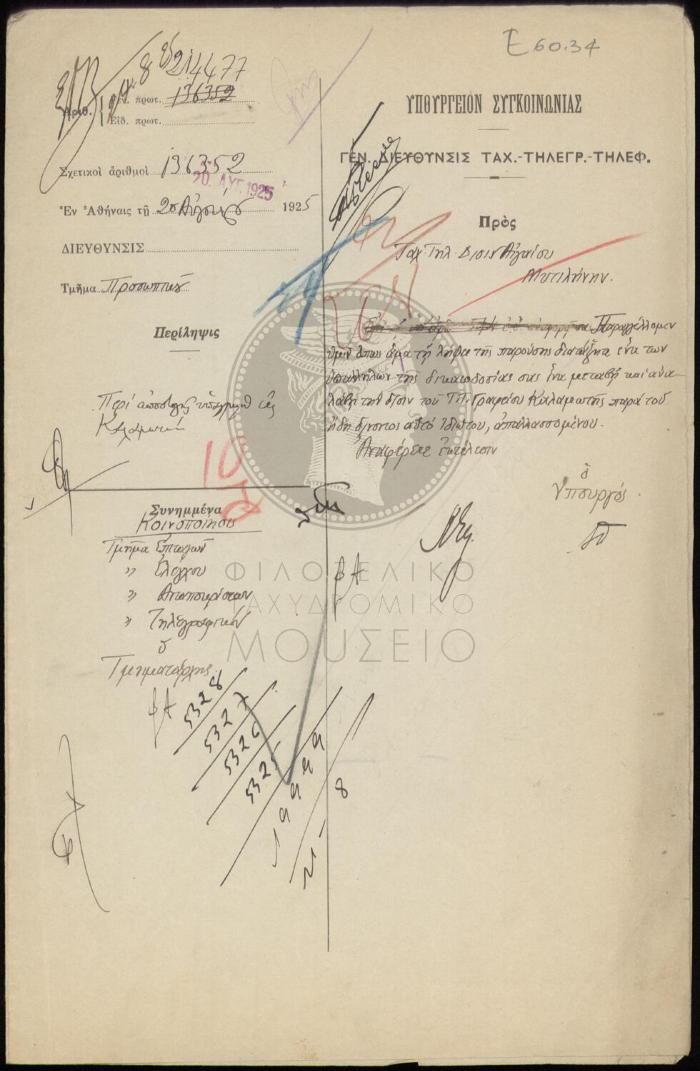 Ε 60.34
214477
Ἀριθ. πρωτ. 136352
Εἰδ. πρωτ.
Σχετικοὶ ἀριθμοὶ 136352
20. ΑΥΓ. 1925
Ἐν Ἀθήναις τῇ 20 Αὐγούστου 1925
ΔΙΕΥΘΥΝΣΙΣ
Τμῆμα Προσωπικοῦ
Περίληψις
Περὶ ἀποστολῆς ὑπαλλήλου εἰς
Καλαμωτὴν
Συνημμένα
Κοινοποίησις
Τμῆμα Ἐπιταγῶν
〃 Ἐλέγχου
〃
〃 Τηλεγραφικὸν
ὁ
Τμηματάρχης
5328
5327
5326
5325
19999
21-8
ΥΠΟΥΡΓΕΙΟΝ ΣΥΓΚΟΙΝΩΝΙΑΣ
ΓΕΝ. ΔΙΕΥΘΥΝΣΙΣ ΤΑΧ.-ΤΗΛΕΓΡ.-ΤΗΛΕΦ.
Πρὸς
Ταχ Τηλ Δ]σιν Αἰγαίου
Μυτιλήνην.
Παραγγέλλομεν
ὑμῖν ὅπως ἅμα τῇ λήψει τῆς παρούσης διατάξητε ἕνα των
ὑπαλλήλων τῆς δικαιοδοσίας σας ἵνα μεταβῇ καὶ ἀνα-
λάβῃ τὴν δ]σιν τοῦ ΤΤ. Γραφείου Καλαμωτῆς παρὰ τοῦ
ἤδη ἰδιώτου, ἀπαλλασσομένου.
Ἀναφέρατε ἐκτέλεσιν
ὁ
Ὑπουργός
ΦΙΛΟΤΕΛΙΚΟ
ΤΑΧΥΔΡΟΜΙΚΟ
ΜΟΥΣΕΙΟ